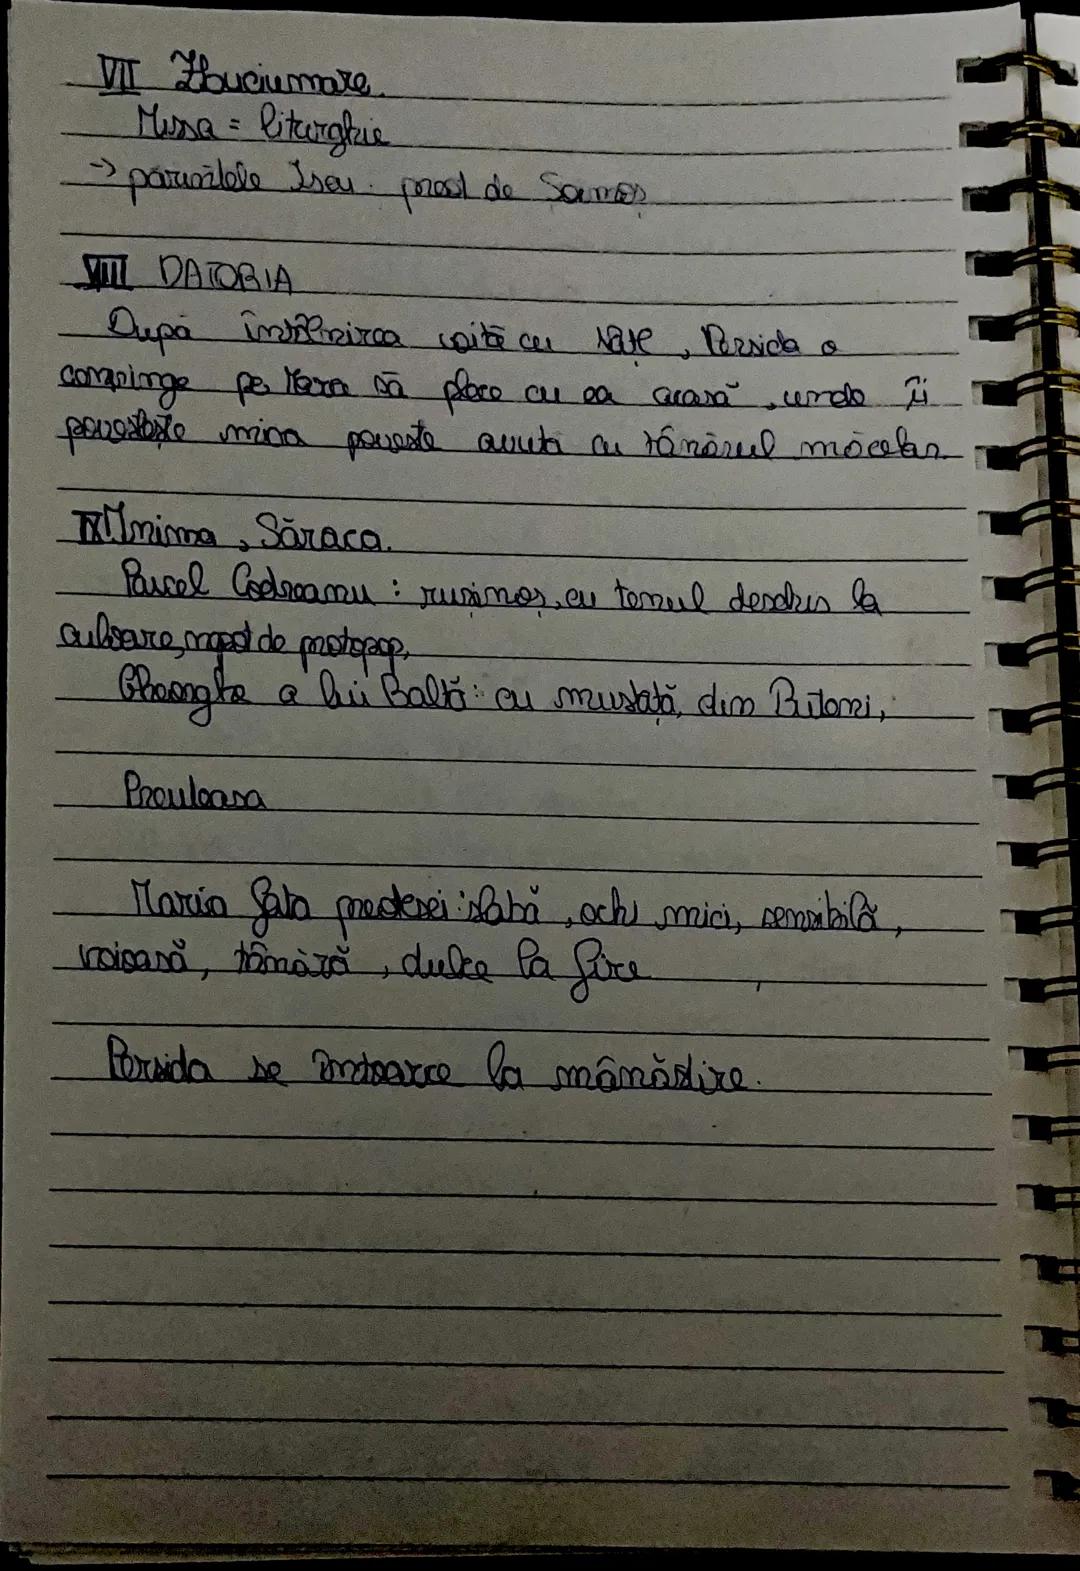 VII Zbuciumare.
Missa = liturghie
-> părintele Iseu. preot de Sameș
VIII DATORIA
După întâlnirea cu Națe, Persida o
convinge pe Mara să plece cu ea acasă, unde îi
povestește mica poveste avută cu tânărul măcelar.
IX Inima, Săraca.
Pavel Codreanu : rușinos, cu tenul deschis la
culoare, nepot de protopop,
Gheorghe a lui Baltă: cu mustață, din Butoni,
Preuteasa
Maria fata preotesei: slabă, ochi mici, sensibilă,
voioasă, tânără, dulce la fire
Persida se întoarce la mânăstire.